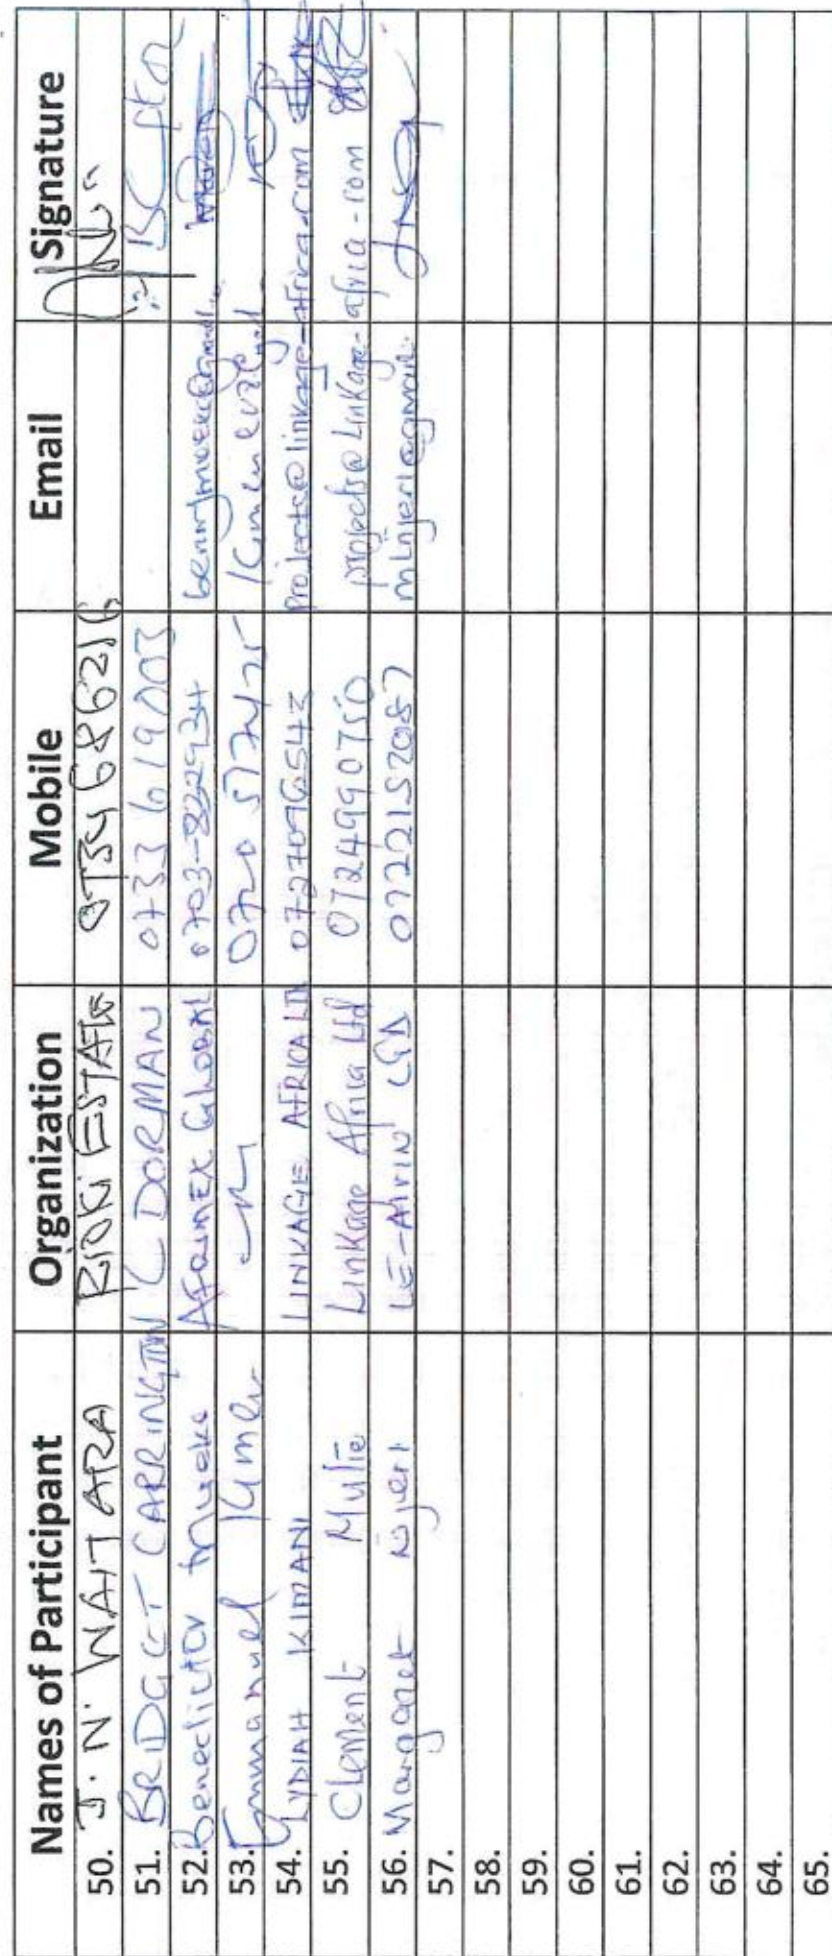 Names of Participant Organization Mobile Email Signature
50. J. N. WAITARA RIOKI ESTATE 0734686216
51. BRIDGET CARRINGTON C DORMAN 0733 619003
52. Benedictor Mueke AFRIMEX Global 0703-822934
53. Emmanuel 0720
54. LYDIAH KIMANI LINKAGE AFRICA LTD projects@linkage-africa.com
55. Clement Mutie Linkage Africa Ltd 0724990750 projects@Linkage-africa.com
56. Margaret Njeri 0722152087
57.
58.
59.
60.
61.
62.
63.
64.
65.